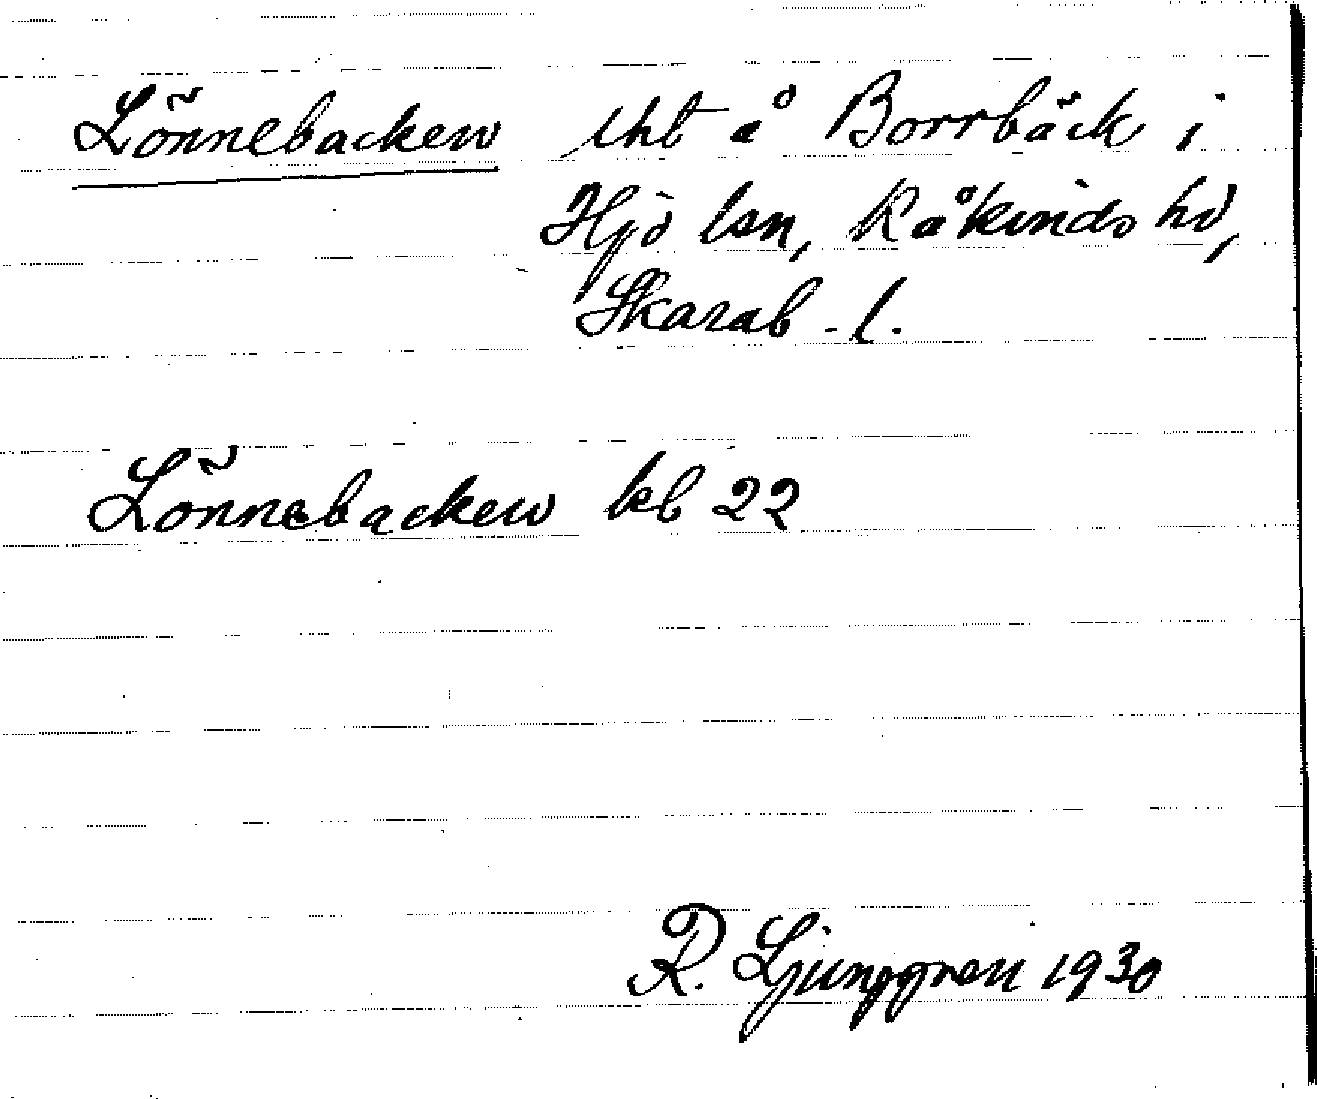 Lönnebacken lht å Borrbäck i
Hjo lsn, Kåkinds hd,
Skarab. l.
Lönnebacken kb 22
R. Ljunggren 1930